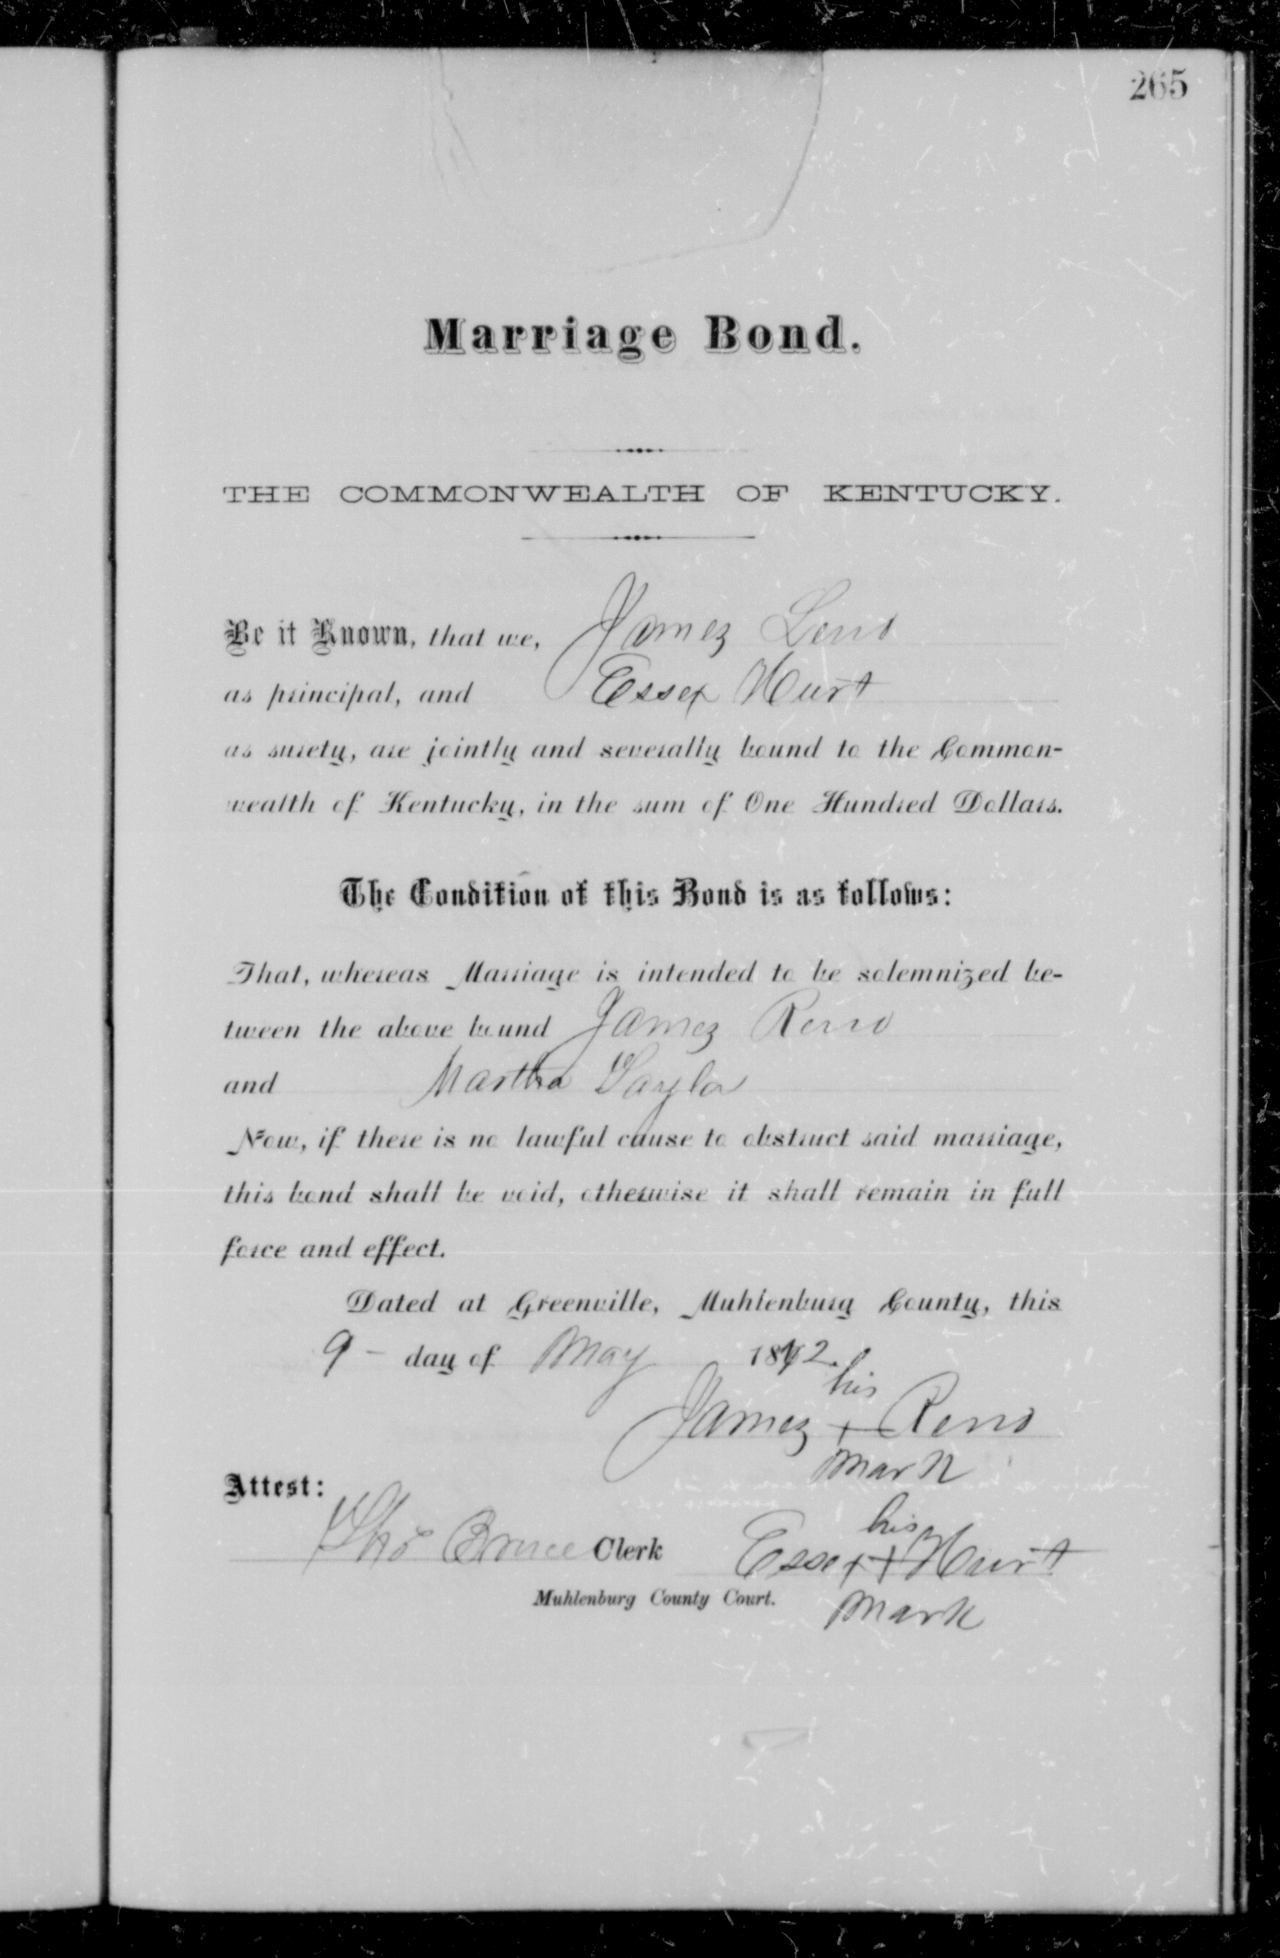 265
Marriage Bond.
THE COMMONWEALTH OF KENTUCKY.
Be it Known, that we, James Leno
as principal, and Essex Hurt
as surety, are jointly and severally bound to the Common-
wealth of Kentucky, in the sum of One Hundred Dollars.
The Condition of this Bond is as follows:
That, whereas Marriage is intended to be solemnized be-
tween the above bound James Reno
and Martha Taylor
Now, if there is no lawful cause to obstruct said marriage,
this bond shall be void, otherwise it shall remain in full
force and effect.
Dated at Greenville, Muhlenburg County, this
9 - day of May 18 2.
his
James + Reno
mark
Attest:
Tho Bruce Clerk
his
Essex + Hurt
Muhlenburg County Court.
mark